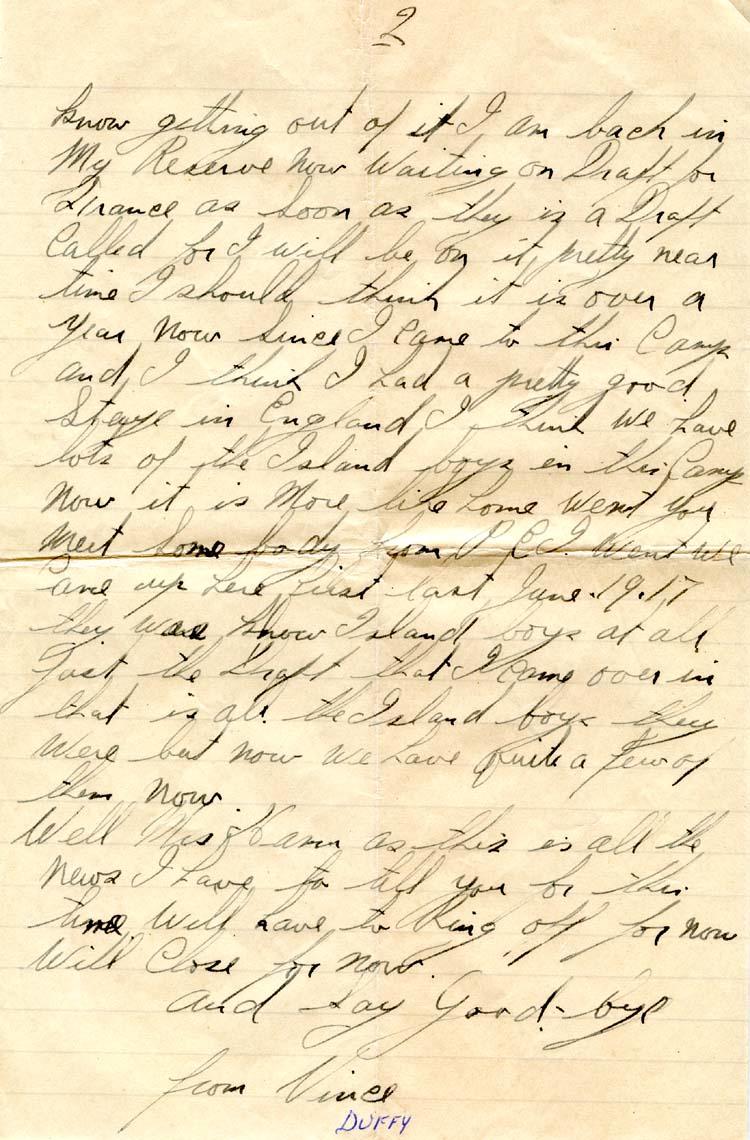 2
know getting out of it I am back in
My Reserve now Waiting on Draft for
France as soon as they is a Draft
Called for I will be on it pretty near
time I should think it is over a
year now since I came to this Camp
and I think I had a pretty good
Staye in England I think we have
lots of the Island boys in this Camp
now it is More like home Went you
meet Some body from P.E.I. Went we
came up here first last June. 19.17
they was know Island boys at all
Just the Draft that I came over in
that is all the Island boys they
Were but now we have quite a few of
them now.
Well Miss as this is all the
news I have to tell you for this
time Will have to Ring off for now
Will Close for now.
and say Good-bye
from Vince
DUFFY